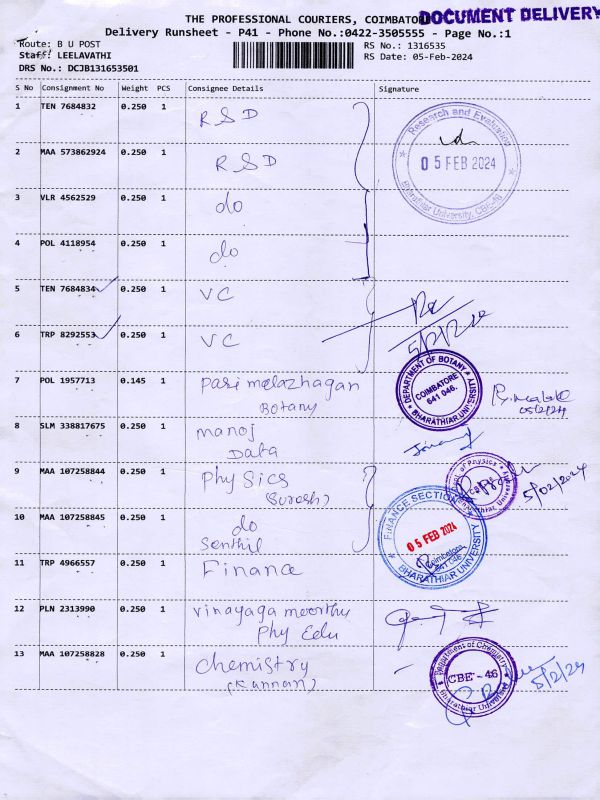 THE PROFESSIONAL COURIERS, COIMBATORE
DOCUMENT DELIVERY
Delivery Runsheet - P41 - Phone No.:0422-3505555 - Page No.:1
Route: B U POST
RS No.: 1316535
Staff: LEELAVATHI
RS Date: 05-Feb-2024
DRS No.: DCJB131653501
S No Consignment No Weight PCS Consignee Details Signature
1 TEN 7684832 0.250 1 RSD
Research and Evaluation
05 FEB 2024
Bharathiar University, CBE-46
2 MAA 573862924 0.250 1 RSD
3 VLR 4562529 0.250 1 do
4 POL 4118954 0.250 1 do
5 TEN 7684834 0.250 1 VC
6 TRP 8292553 0.250 1 VC
5/2/2024
7 POL 1957713 0.145 1 Parimelazhagan
Botany
DEPARTMENT OF BOTANY
COIMBATORE
641 046.
BHARATHIAR UNIVERSITY
05/2/24
8 SLM 338817675 0.250 1 manoj
Data
9 MAA 107258844 0.250 1 Physics
(Suresh)
5/02/2024
10 MAA 107258845 0.250 1 do
Senthil
FINANCE SECTION
05 FEB 2024
Coimbatore
641 046
BHARATHIAR UNIVERSITY
11 TRP 4966557 0.250 1 Finance
12 PLN 2313990 0.250 1 Vinayaga moorthy
Phy Edu
13 MAA 107258828 0.250 1 chemistry
(Kannan)
Department of Chemistry
CBE - 46
Bharathiar University
5/2/24